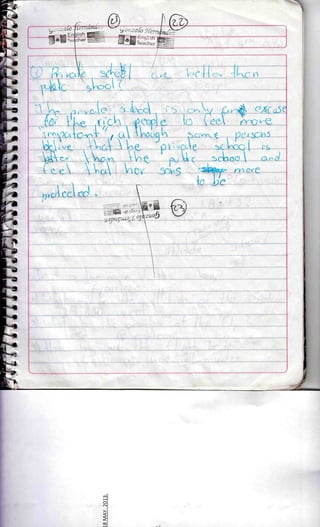 21
22
Gonzalo Hernández
Gonzalo Hernández
① Private school are better then
public shool?
The private school is only an excuse
for the rich people to feel more
"important", although some persons
belive that the private school is
better than the public school and
feel that her sons more
to be
protected.
Gonzalo Hernández
22
18 MAY. 2013